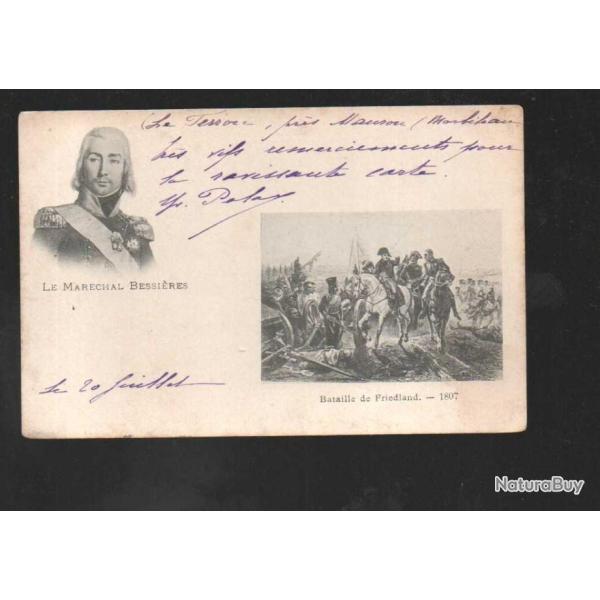 (Le Terrou, près Mauron (Morbihan
très vifs remerciements pour
la ravissante carte.
LE MARECHAL BESSIÈRES
le 20 Juillet
Bataille de Friedland. — 1807
NaturaBuy